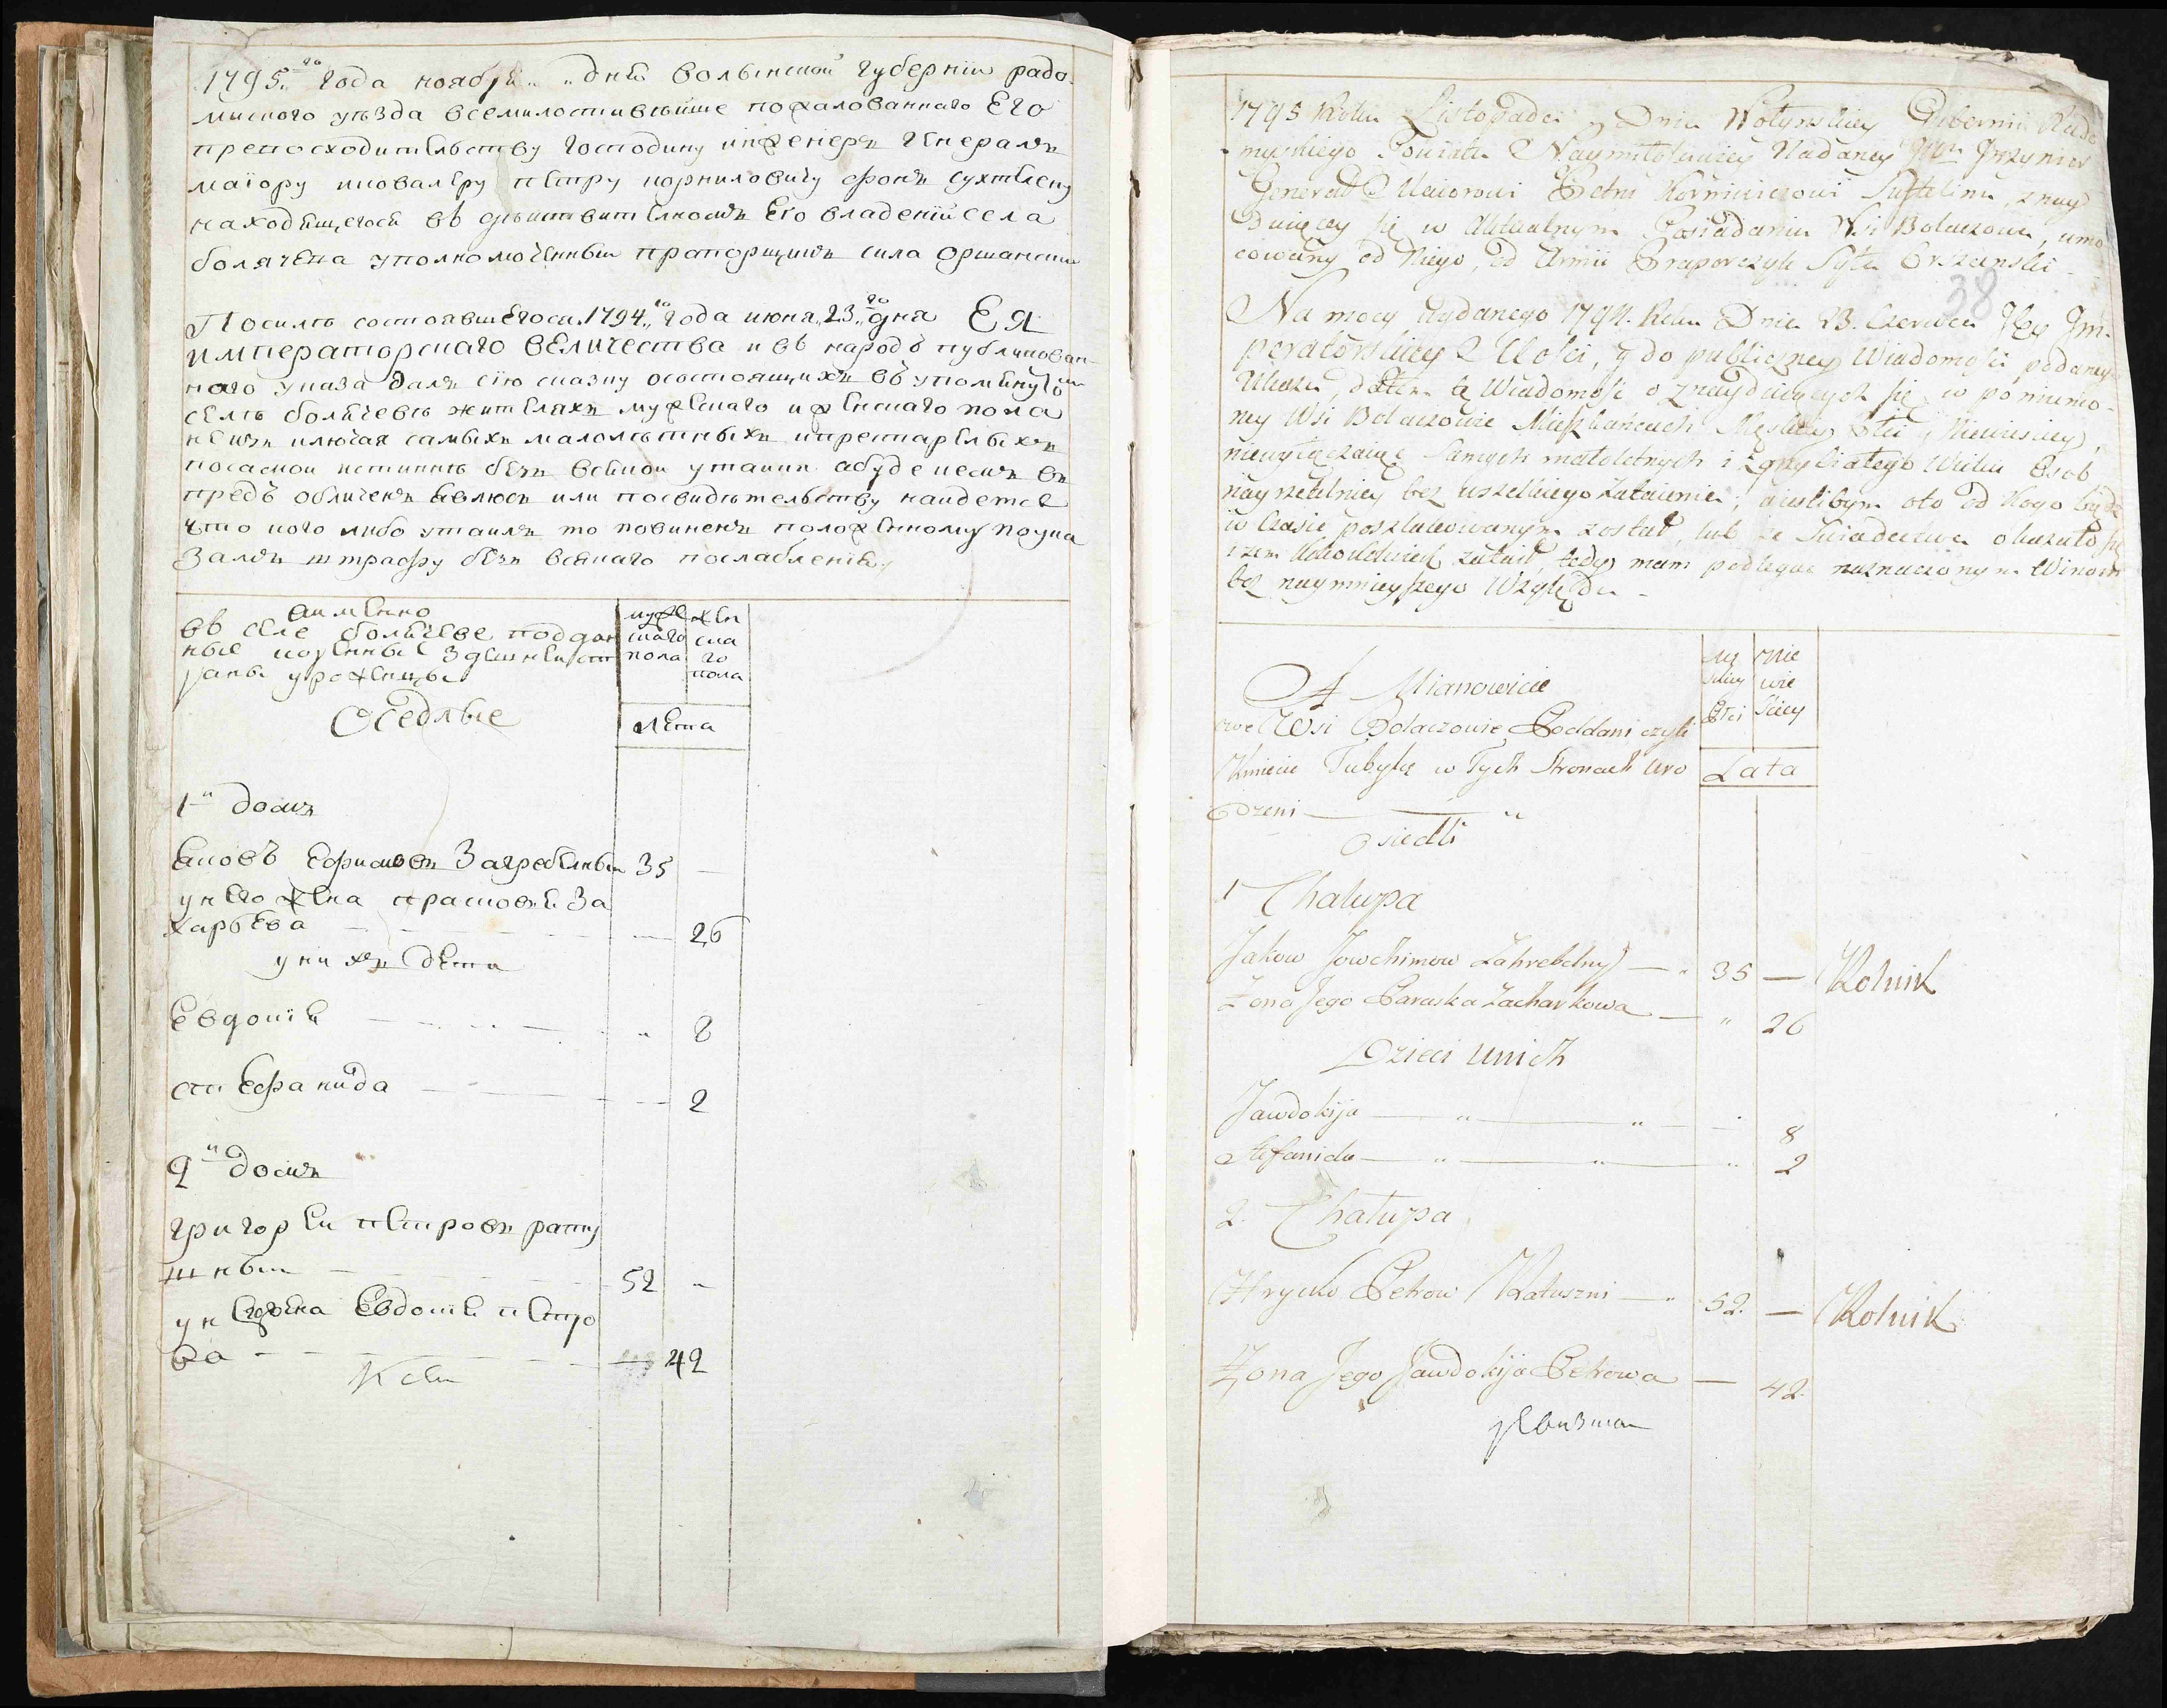 1795.го года ноября „ „ дня волынской губернии радо-
миского уѣзда всемилостивѣйше пожалованнаго Его
превосходительству господину инженеръ генералъ
маіору иковалеру петру корниловичу фонъ сухтелену
находящегося въ дѣйствителномъ Его владении села
болячева уполномоченный прапорщикъ сила оршански
Посилѣ состоявшегося 1794„го года июня„23„го дня ЕЯ
императорскаго величества и въ народъ публикован-
наго указа далъ сию сказку осостоящихъ въ упомянутом
селѣ болячевѣ жителяхъ мужескаго и женскаго пола
не изключая самыхъ малолѣтныхъ и престарелыхъ
посамой истиннѣ безъ всякой утайки абуде кемъ в
предъ обличенъ явлюсъ или посвидѣтельству найдется
что кого либо утаилъ то повиненъ положенному поука
замъ штрафу безъ всякаго послабления„
аимянно
въ селе болячеве поддан
ные коренные здешней ст
раны уроженцы
муже
скаго
пола
жен
ска
го
пола
Оседлые
лета
1й домъ
яковъ ефимовъ Загребелный 35 —
унего жена прасковья За
харьева — — 26
унихъ дети
Евдокия — „ 8
степанида — — 2
2й домъ
григорей петровъ рату
шный — 52 „
унего жена Евдокия петро
ва — — 42
К сей
1795 Roku Listopada „ Dnia Wołynskiey Gubernii Rado
myskiego Powiatu Naymiłościwiey Nadaney JWu Jnzynier
Generał Maiorowi Petru Korniłowiczowi Suhtelinu, znay
duięcey się w Aktualnym Posiadaniu Wsi Bolaczowa, umo
cowany od Niego, od Armii Praporczyk Syła Orszanski
38
Na mocy Wydanego 1794. Roku Dnia 23. Czerwca Jey Jm-
peratorskiey Mości, y do publiczney Wiadomości podanego
Ukazu, dałem tę Wiadomość o znayduiących się w pomienio-
ney Wsi Bolaczowie Mieszkańcach Męskiey Płci y Niewieściey,
niewyłączaiąc Samych małoletnych i zgrzybiałego Wieku Osob
nayrzetelniey bez wszelkiego Zataienia, a ieslibym oto od Kogo bądź
w Czasie poszlakowanym został, lub ze Swiadectwa okazało się
iżem Kogokolwiek zataił, tedy mam podlegać naznaczonym Winom
bez naymnieyszego Względu -
A Mianowicie
we Wsi Bolaczowie Poddani czyli
Kmiecie Tubylcy w Tych Stronach uro
dzeni — „
Mę
skiey
Płci
Nie
wie
sciey
Lata
Osiedli
1 Chałupa
Jakow Jowchimow Zahrebelny — „ 35 — Rolnik
Zona Jego Paraska Zacharkowa — „ 26
Dzieci unich
Jawdokija — „ — „ — 8
Stefanida — „ — „ — „ 2
2. Chałupa
Hryćko Petrow Ratuszni — „ 52. — Rolnik
Zona Jego Jawdokija Petrowa — 42.
ревизкои